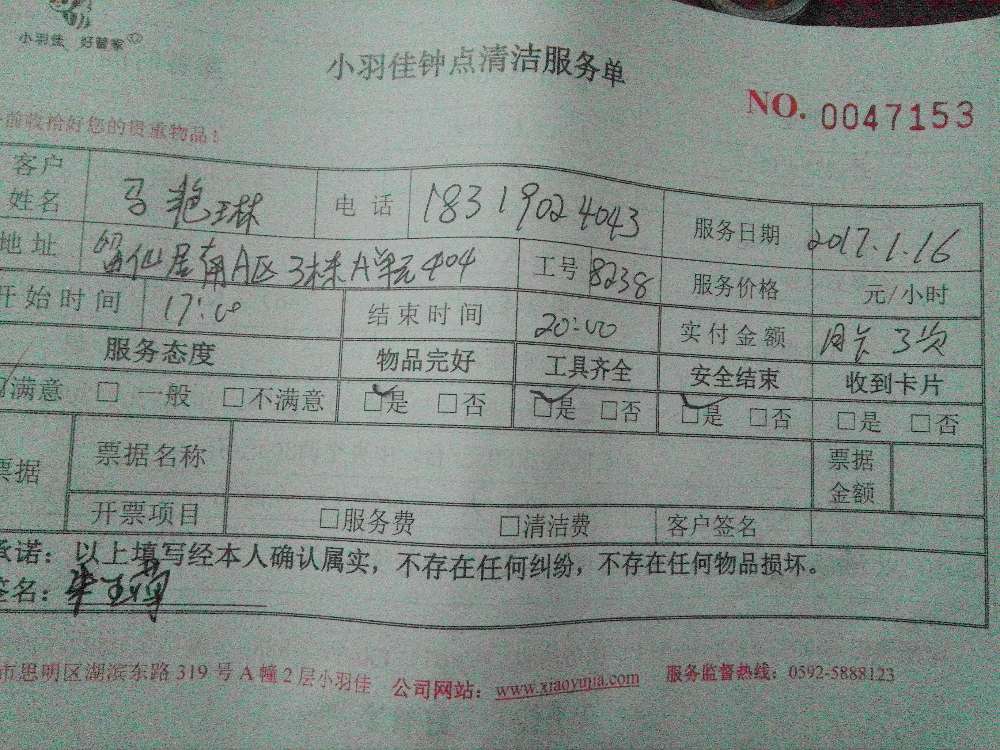 小羽佳 好管家
小羽佳钟点清洁服务单
NO. 0047153
前收拾好您的贵重物品！
客户姓名 马艳琳 电话 18319024043 服务日期 2017.1.16
地址 留仙居南A区3栋A单元404 工号 8238 服务价格 元/小时
开始时间 17:00 结束时间 20:00 实付金额 月卡3次
服务态度 物品完好 工具齐全 安全结束 收到卡片
满意 □ 一般 □不满意 □是 □否 □是 □否 □是 □否 □是 □否
票据 票据名称 票据金额
开票项目 □服务费 □清洁费 客户签名
承诺：以上填写经本人确认属实，不存在任何纠纷，不存在任何物品损坏。
签名：
市思明区湖滨东路319号A幢2层小羽佳 公司网站：www.xiaoyujia.com 服务监督热线：0592-5888123